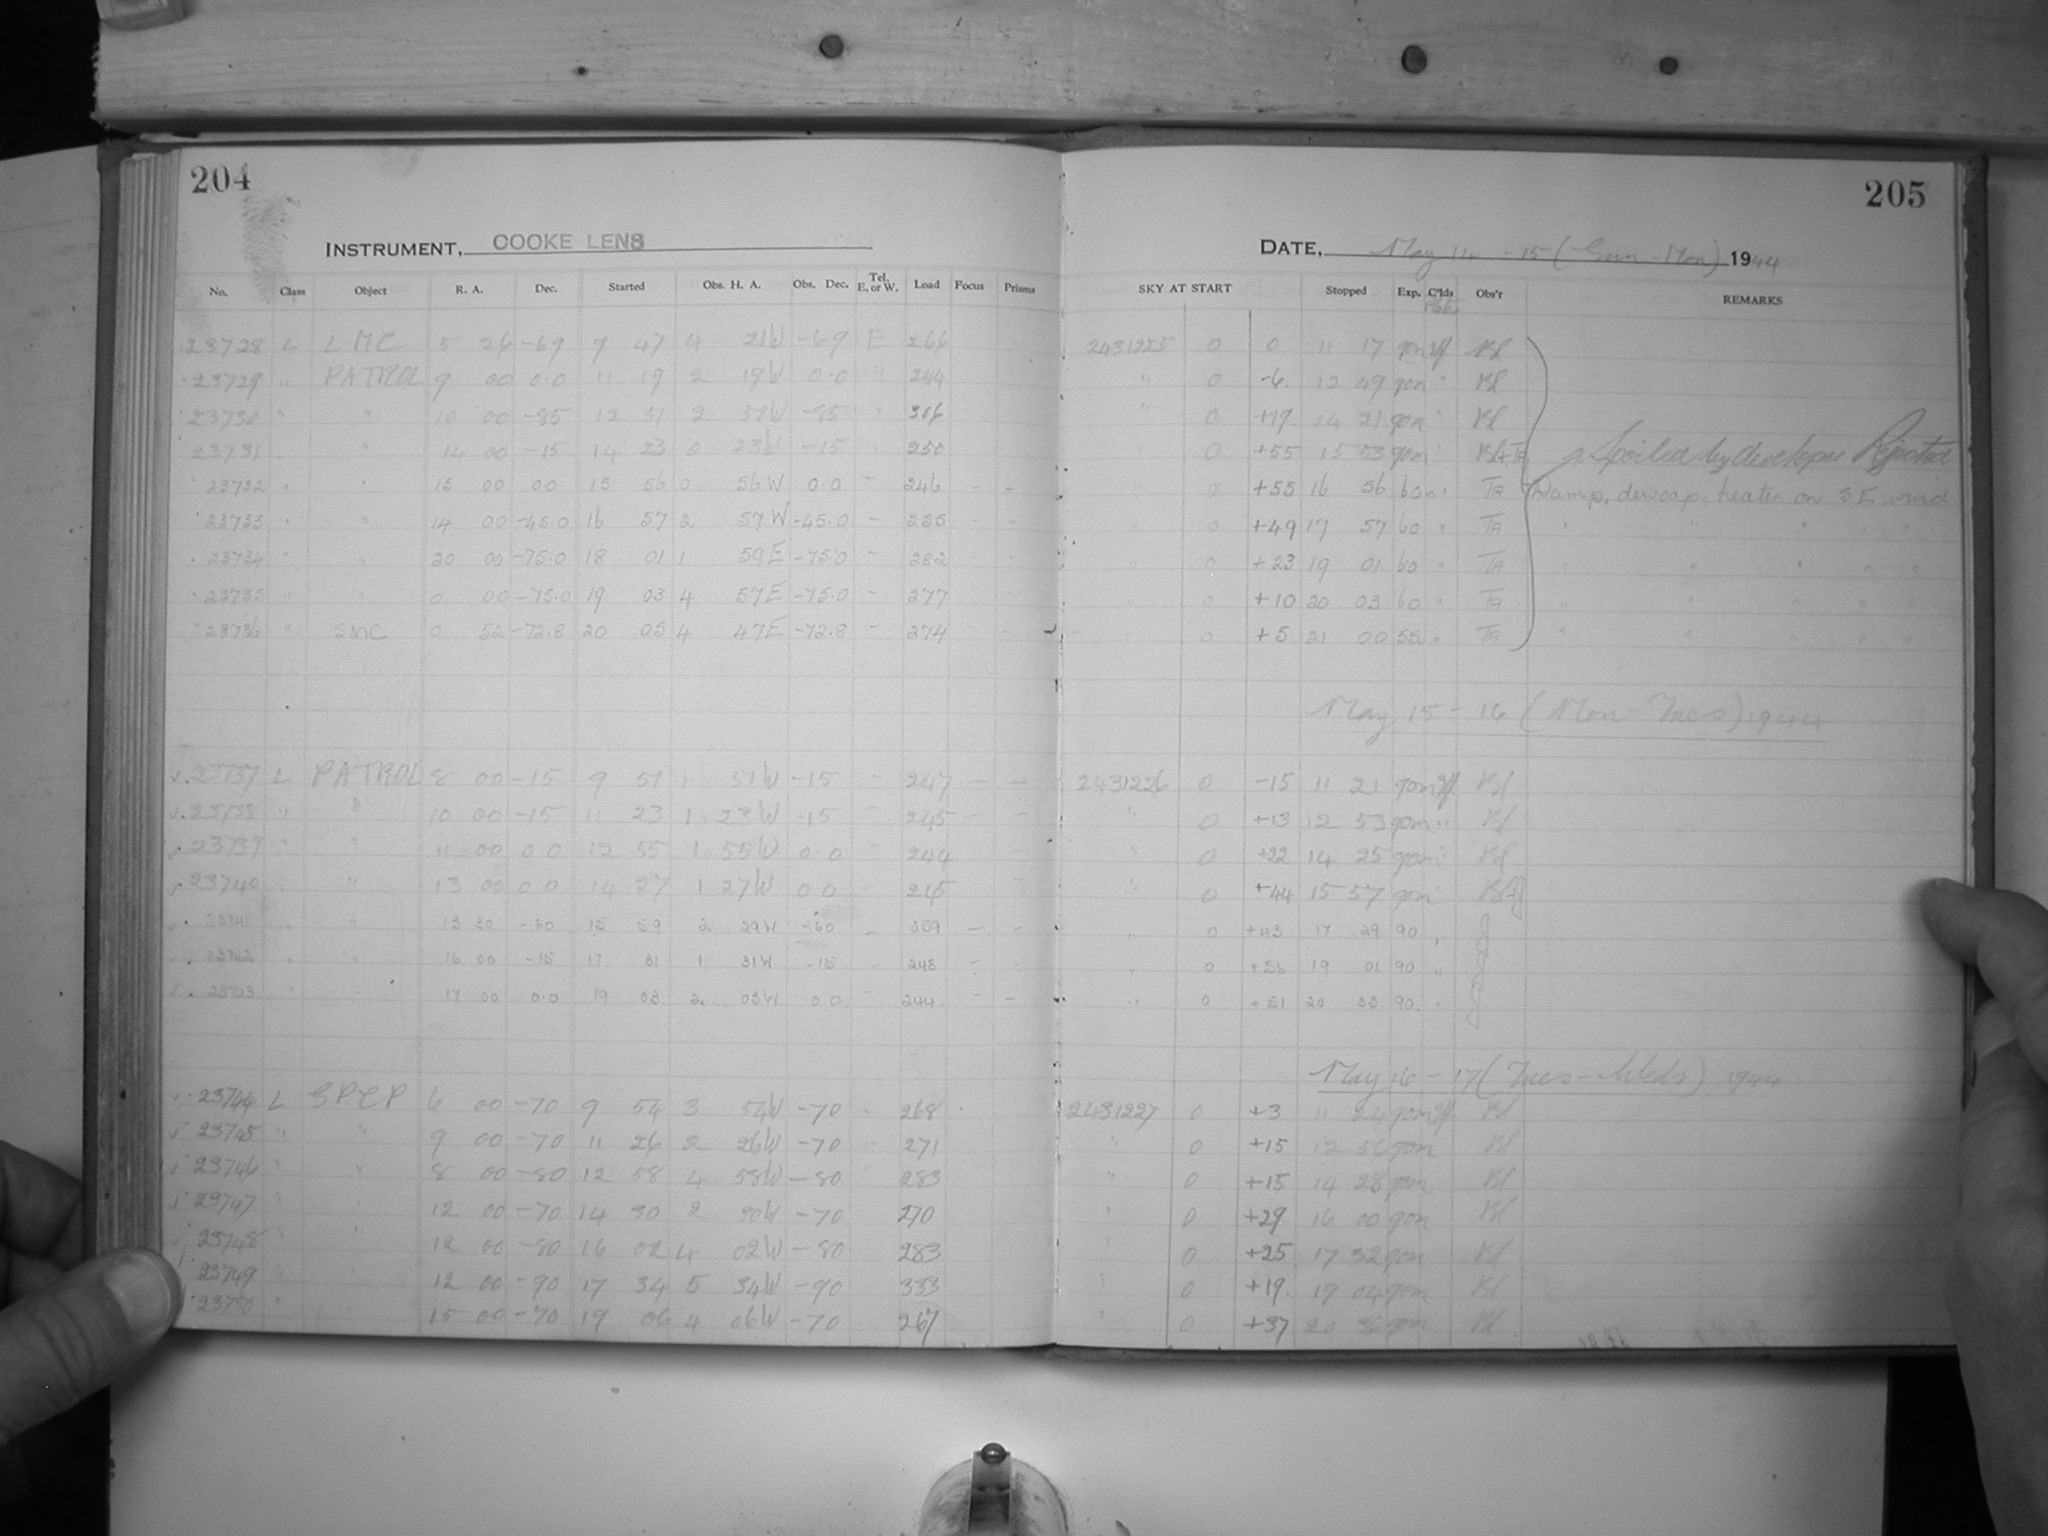 204
INSTRUMENT, COOKE LENS
No. Class Object R. A. Dec. Started Obs. H. A. Obs. Dec. Tel. E. or W. Load Focus Prisms
23728 L LMC 5 26 -69 9 47 4 21W -69 E 266
23729 " PATROL 9 00 0.0 11 19 2 19W 0.0 " 244
23730 " " 10 00 -85 12 51 2 51W -85 " 306
23731 " 14 00 -15 14 23 0 23W -15 250
23732 " " 15 00 00 15 56 0 56W 0.0 - 246 - -
23733 " " 14 00 -45.0 16 57 2 57W -45.0 - 255
23734 " " 20 00 -75.0 18 01 1 59E -75.0 - 282
23735 " " 0 00 -75.0 19 03 4 57E -75.0 - 277
23736 " SMC 0 52 -72.8 20 05 4 47E -72.8 - 274 -
23737 L PATROL 8 00 -15 9 51 1 51W -15 - 247 - -
23738 " " 10 00 -15 11 23 1 23W -15 - 245 - -
23739 " " 11 00 0 0 12 55 1 55W 0 0 244
23740 " 13 00 0 0 14 27 1 27W 0 0 - 245
23741 " " 13 30 -60 15 59 2 29W -60 - 259 - -
23742 " " 16 00 -15 17 31 1 31W -15 - 248 -
23743 " 17 00 0.0 19 03 2 03W 0.0 - 244 - -
23744 L SPCP 6 00 -70 9 54 3 54W -70 - 268
23745 " " 9 00 -70 11 26 2 26W -70 - 271
23746 " " 8 00 -80 12 58 4 58W -80 283
23747 " " 12 00 -70 14 30 2 30W -70 270
23748 " 12 00 -80 16 02 4 02W -80 283
23749 " 12 00 -90 17 34 5 34W -90 333
23750 " 15 00 -70 19 06 4 06W -70 267
205
DATE, May 14 - 15 (Sun - Mon) 1944
SKY AT START Stopped Exp. C'lds Obs'r REMARKS
2431225 0 0 11 17 90m Bl
" 0 -6 12 49 90m " Bl
" 0 +19 14 21 90m " Bl
" 0 +55 15 53 90m " Bl+TA Spoiled by developer Rejected
" 0 +55 16 56 60m " TA Damp, dewcap heater on SE wind
" 0 +49 17 57 60 " TA " " " "
" 0 +23 19 01 60 " TA " " " "
" 0 +10 20 03 60 " TA " " " "
0 +5 21 00 55 " TA " " " "
May 15 - 16 (Mon - Tues) 1944
2431226 0 -15 11 21 90m Bl
" 0 +13 12 53 90m " Bl
" 0 +22 14 25 90m " Bl
" 0 +44 15 57 90m " Bl
" 0 +43 17 29 90 "
" 0 +56 19 01 90 "
" 0 +51 20 33 90 "
May 16 - 17 (Tues - Weds) 1944
2431227 0 +3 11 24 90m Bl
" 0 +15 12 56 90m Bl
" 0 +15 14 28 90m Bl
" 0 +29 16 00 90m Bl
" 0 +25 17 32 90m Bl
" 0 +19 19 04 90m Bl
" 0 +37 20 36 90m Bl